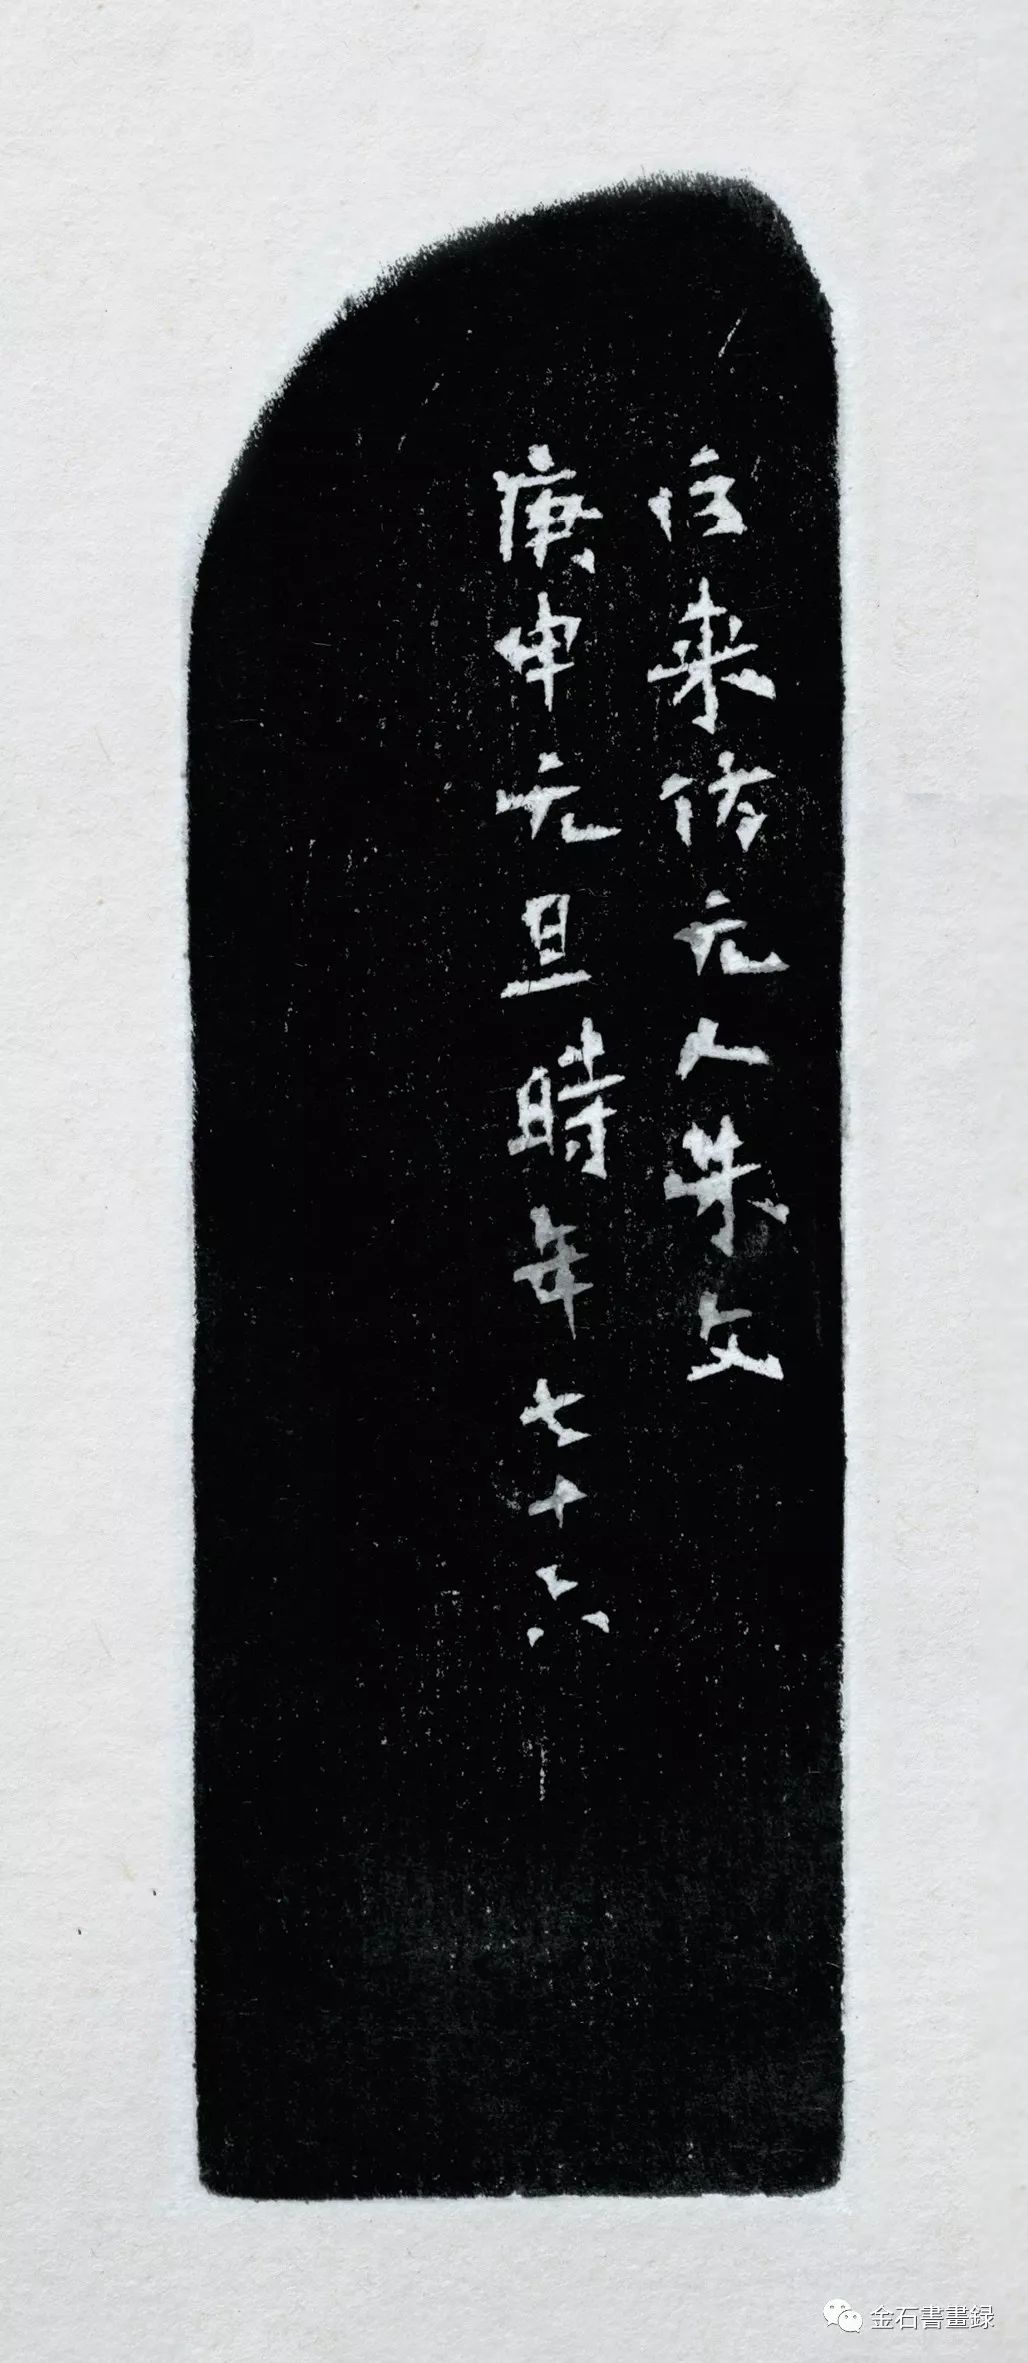 巨来仿元人朱文
庚申元旦時年七十六
金石書畫録